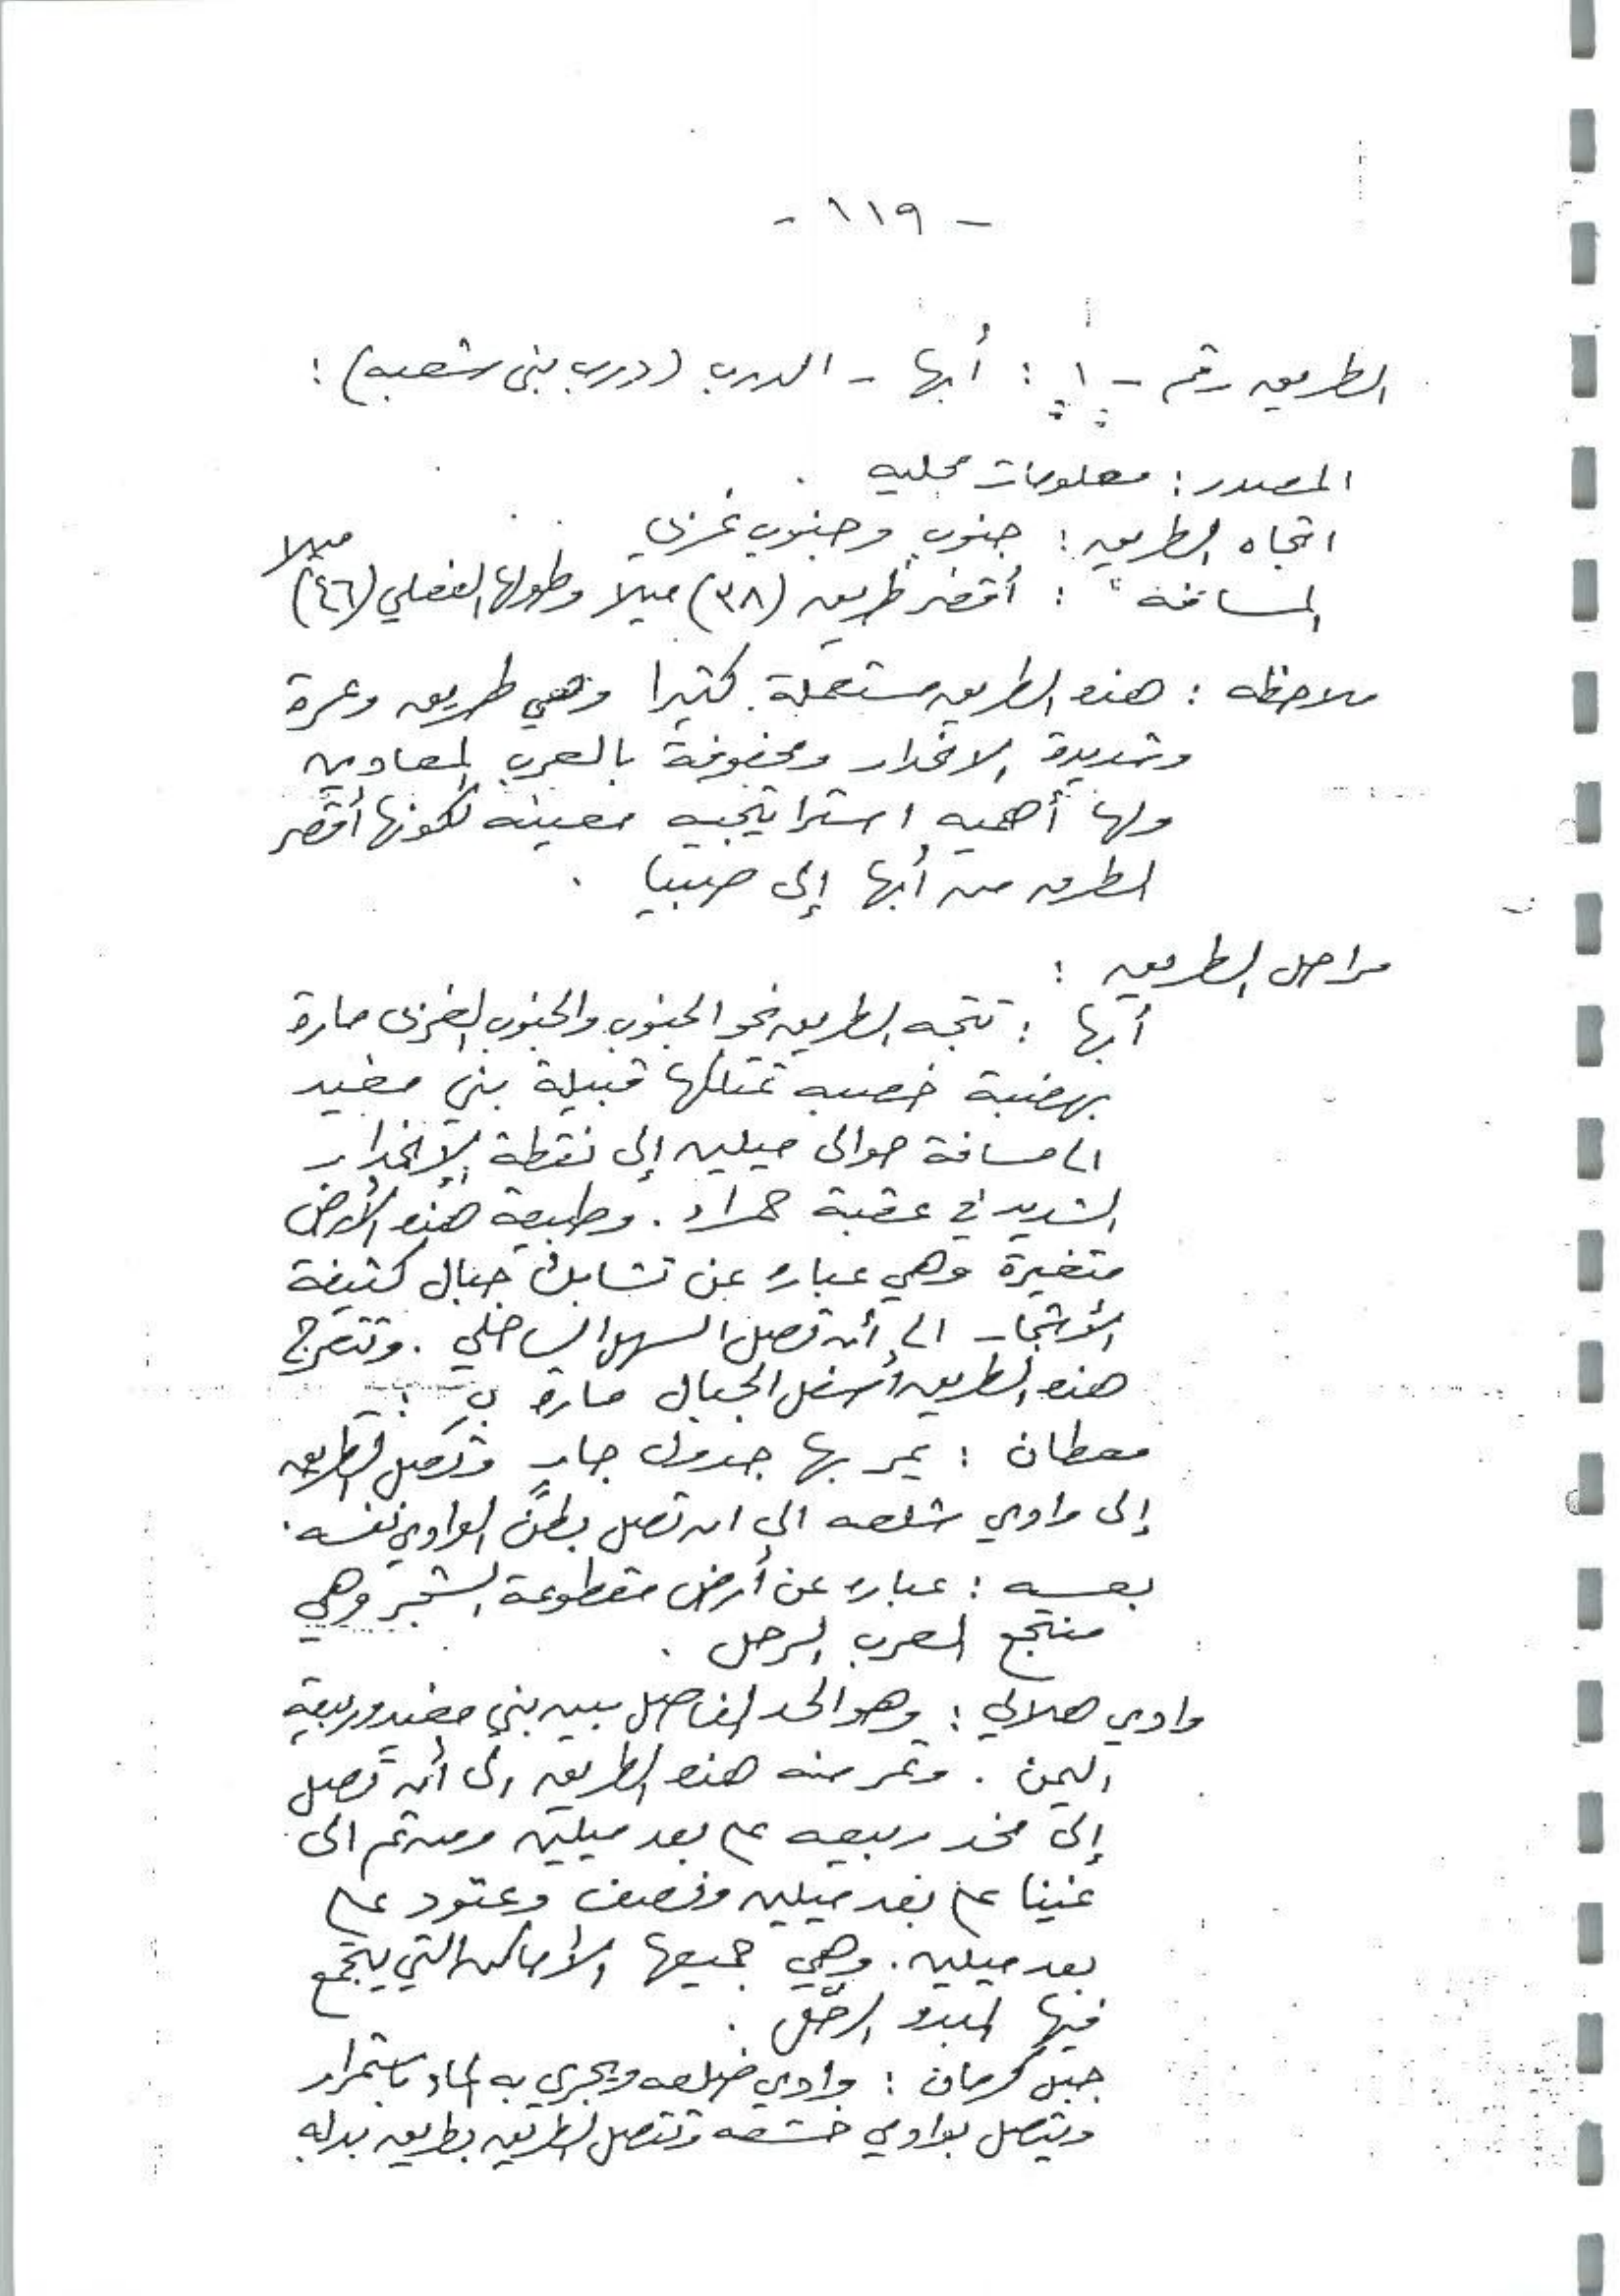 - ١١٩ -
الطريق رقم - ١ : أبها - الدرب (درب بني شعبه) :
المصدر : معلومات محليه .
اتجاه الطريق : جنوب وجنوب غربي
المسافه : أقصر طريق (٣٨) ميلا وطولها الفعلي (٤٦) ميلا
ملاحظه : هذه الطريق مستعملة كثيرا وهي طريق وعرة
وشديدة الانحدار ومحفوفة بالعرب المعادين
ولها أهميه استراتيجيه معينه لكونها أقصر
الطرق من أبها إلى صبيا .
مراحل الطريق :
أبها : تتجه الطريق نحو الجنوب والجنوب الغربي مارة
بهضبة خصبه تمتلكها قبيلة بني مغيد
الى مسافة حوالى ميلين إلى نقطة الإنحدار
الشديد في عقبة حمراء . وطبيعة هذه الأرض
متغيرة وهي عباره عن تشابك جبال كثيفة
الأشجار الى أن تصل السهل الساحلي . وتتعرج
هذه الطريق أسفل الجبال ماره بـ :
معطان : يمر بها جدول جارٍ وتصل الطريق
إلى وادي شلعه الى ان تصل بطن الوادي نفسه .
بعسه : عباره عن أرض مقطوعة الشجر وهي
منتجع العرب الرحل .
وادي هلالي : وهو الحد الفاصل بين بني مغيد وربيعة
اليمن . وتمر منه هذه الطريق الى أن تصل
إلى مخد ربيعه على بعد ميلين ومن ثم الى
غينا على بعد ميلين ونصف وعتود على
بعد ميلين . وهي جميعها الأماكن التي يتجمع
فيها البدو الرحّل .
جبل كرمان : وادي ضلعه ويجري به الماء باستمرار
ويتصل بوادي خشعه وتتصل الطريق بطريق بدله